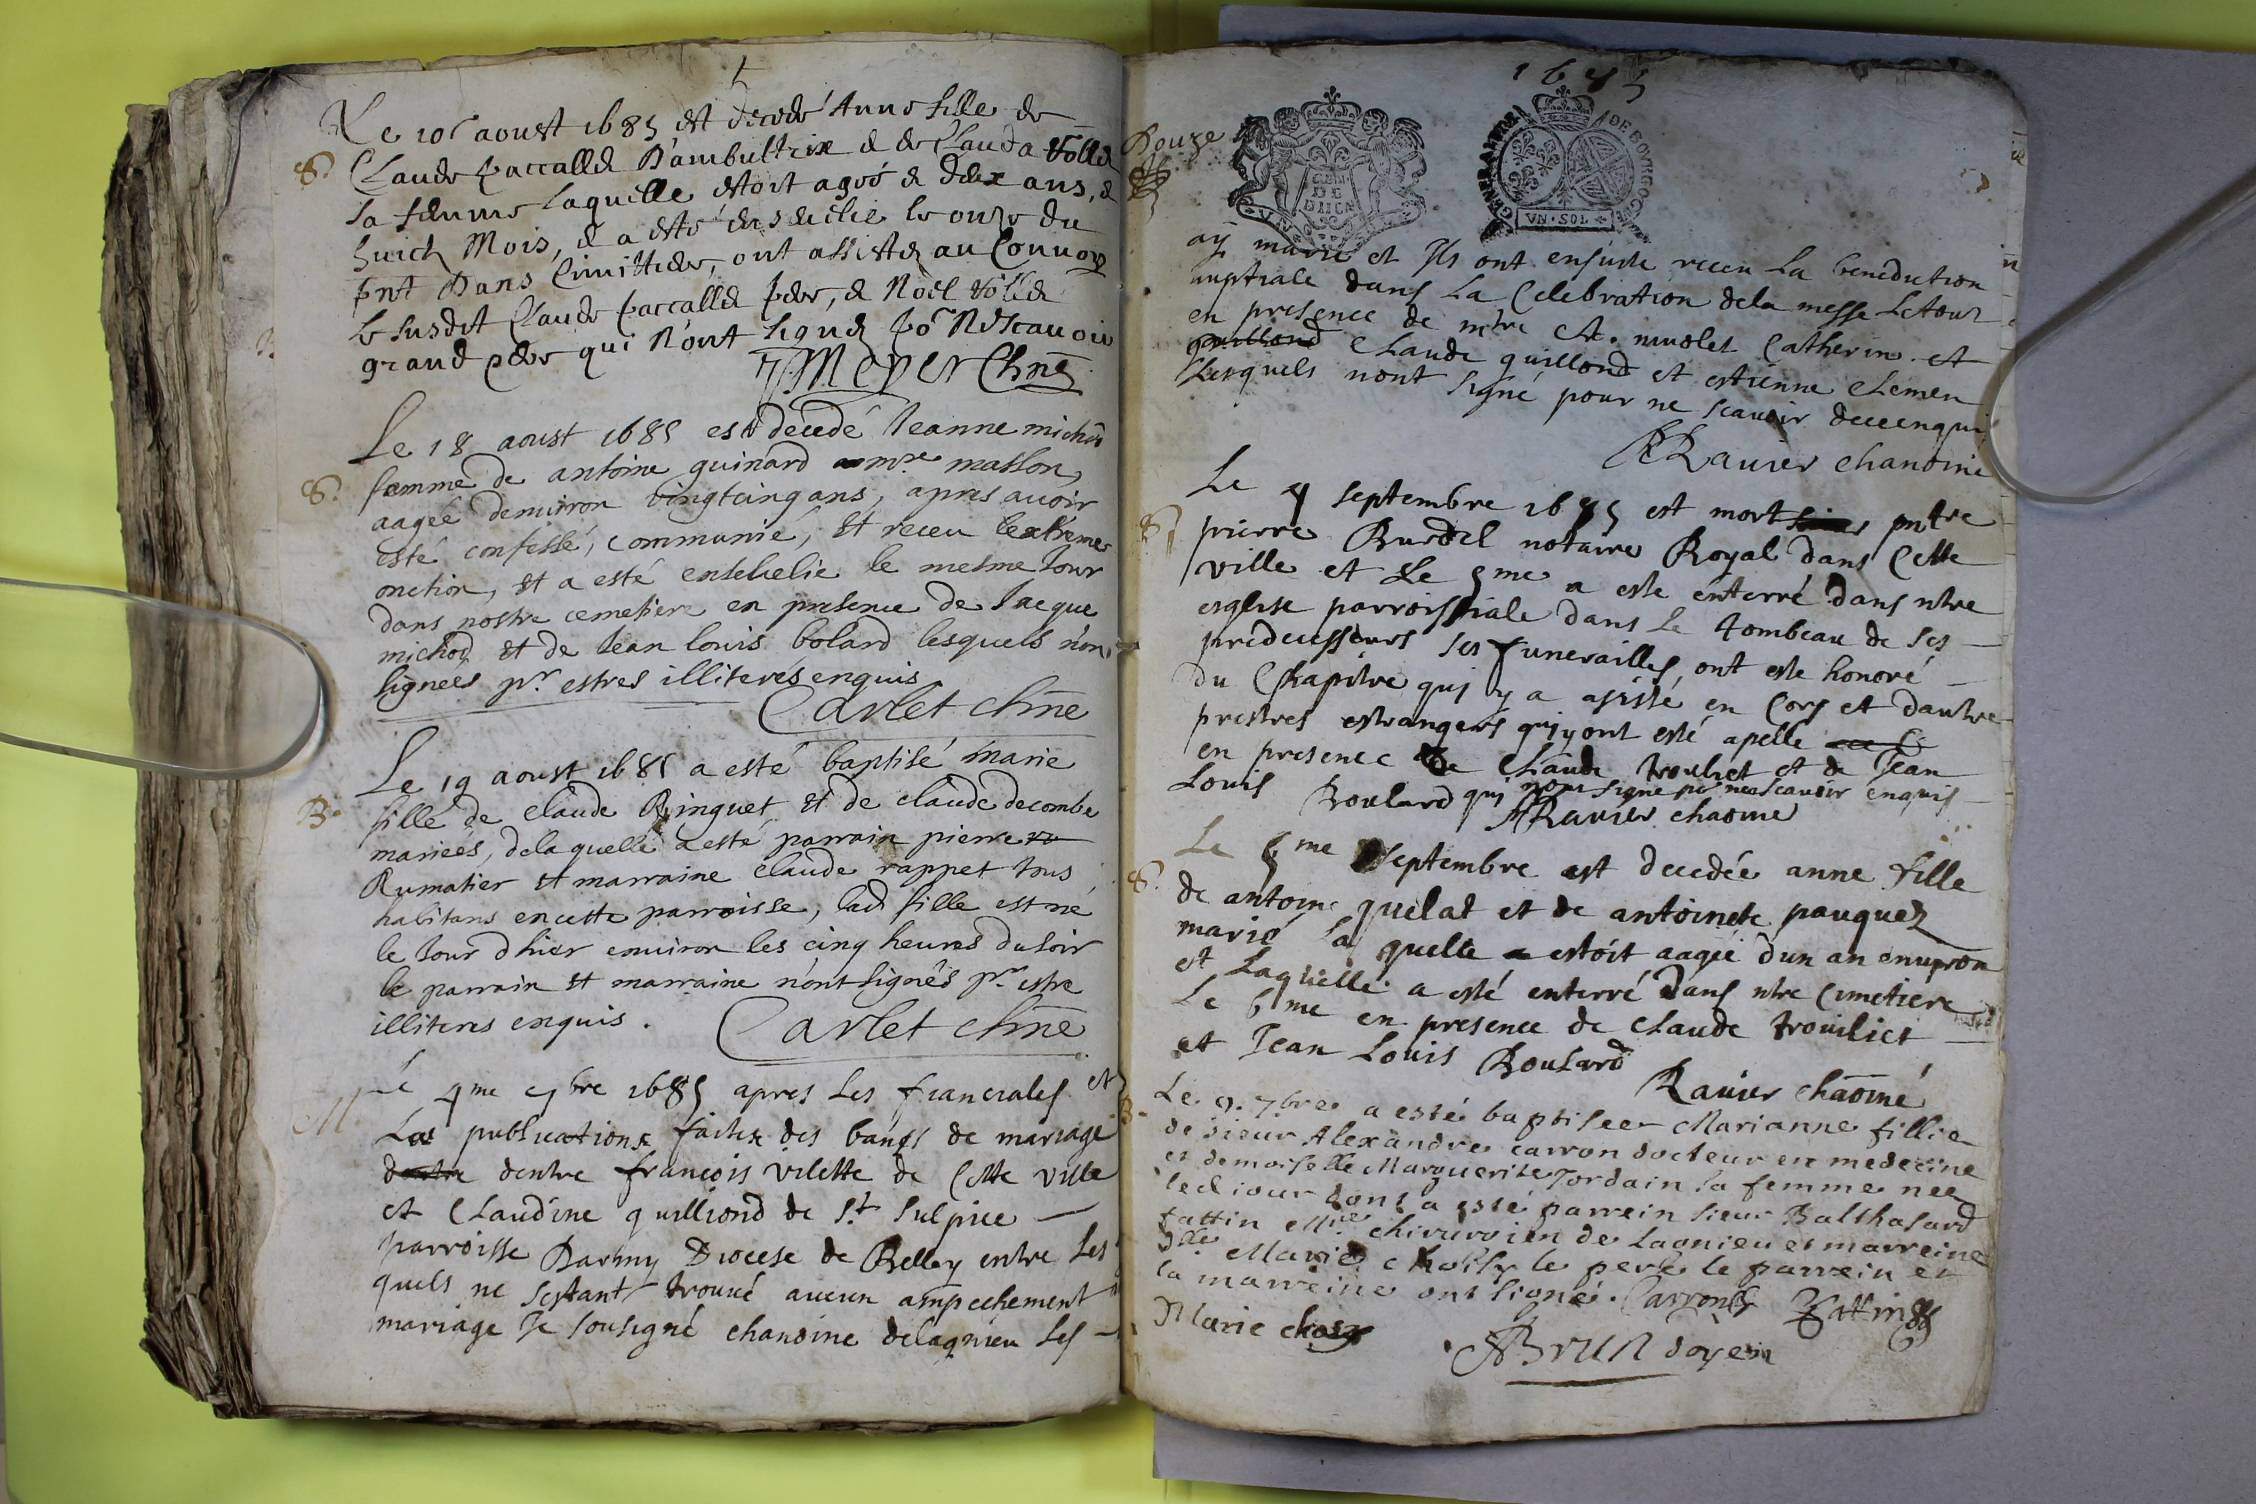 Le 10e aoust 1685 est decedé Anne fille de
S.
Claude paccallet D'ambultrix et de Clauda vollet
sa femme laquelle estoit agée de deux ans, et
huict Mois, et a esté ensevelie le onze du
pnt Dans Cimittiere, ont assistez au Convoy
le susdit Claude paccallet pere, et Noël vollet
grand pere qui N'ont signez po.r Ne scauoir
Meyer Chne
Le 18 aoust 1685 est decedé Jeanne michon
S.
femme de antoine guinard mre masson,
aagée denuiron vingtcinq ans, apres auoir
esté confessé, communié, et receu lextreme
onction, et a esté ensevelie le mesme Jour
dans nostre cemetiere en presence de Jacque
michon et de Jean louis bolard lesquels n'on
signees pr. estres illiterés enquis
Carlet chne
Le 19 aoust 1685 a esté baptisé marie
B.
fille de claude Ringuet et de claude decombe
mariées, de laquelle a esté parrain pierre
Rumatier et marraine claude rappet tous
habitans en cette parroisse, lad fille est né
le Jour d'hier environ les cinq heures du soir
le parrain et marraine n'ont signés pr. estre
illiteres enquis.
Carlet chne
M
Le 4me 7bre 1685 apres les fianciales et
Les publications faites des bancs de mariage
dentre francois vilette de Cette ville
et Claudine quilliond de St. Sulpice
parroisse Darmy Diocese de Belley entre les
quels ne sestant trouué aucun ampechement
mariage Je sousigné chanoine de lagnieu les
1685
Bouze
GEN DE DIICN
VN
GENERALITE DE BOVRGOGNE
VN·SOL
ay marié et Ils ont ensuite receu La benediction
nuptiale dans La Celebration de la messe Le tour
en presence de mtre Catherin et
Claude quillond et estienne Clemen
Lesquels nont signé pour ne scauoir de ce enqui
Rauier chanoine
Le 4 septembre 1685 est mort
S.
pierre Burdel notaire Royal dans Cette
ville et Le 5me a este enterré dans ntre
esglise parroissiale dans Le tombeau de ses
predecesseurs ses funerailles, ont este honoré
du Chapitre qui y a assisté en Cors et dautre
prestres estrangers qui y ont esté apelle
en presence de Claude trouliet et de Jean
Louis Boulard qui nont signé pr ne scauoir enquis
Rauier chaoine
Le 5me septembre est decedée anne fille
S.
de antoine quelat et de antoinete pauquez
marié la quelle estoit aagée dun an enuiron
et Laquelle a esté enterré dans ntre Cimetiere
Le 6me en presence de Claude trouiliet
et Jean Louis Boulard
Rauier chaoine
B.
Le 9. 7bre a esté baptisee Marianne fillie
de sieur Alexandre carron docteur en medecine
et demoiselle Marguerite Jordain sa femme nee
led iour dont a esté parrein sieur Balthasard
fattin Mre chirurgien de Lagnieu et marreine
Dlle Marie Choisy le pere le parrein et
la marreine ont signé. Carron fattin
Marie choisy
Brun doyen